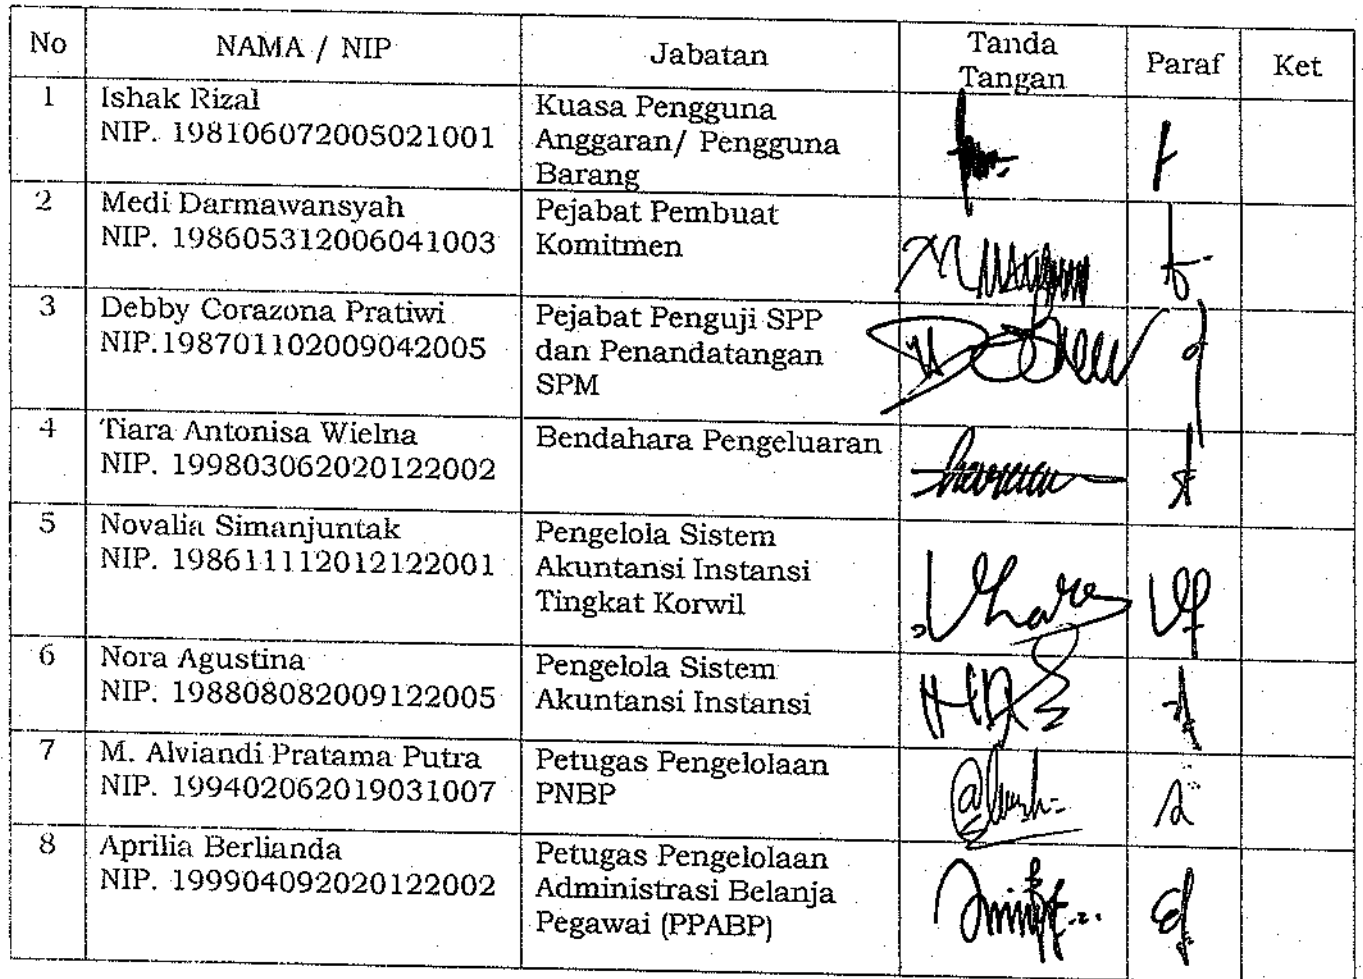 No NAMA / NIP Jabatan Tanda Tangan Paraf Ket
1 Ishak Rizal
NIP. 198106072005021001
Kuasa Pengguna
Anggaran/ Pengguna
Barang
2 Medi Darmawansyah
NIP. 198605312006041003
Pejabat Pembuat
Komitmen
3 Debby Corazona Pratiwi
NIP.198701102009042005
Pejabat Penguji SPP
dan Penandatangan
SPM
4 Tiara Antonisa Wielna
NIP. 199803062020122002
Bendahara Pengeluaran
5 Novalia Simanjuntak
NIP. 198611112012122001
Pengelola Sistem
Akuntansi Instansi
Tingkat Korwil
6 Nora Agustina
NIP. 198808082009122005
Pengelola Sistem
Akuntansi Instansi
7 M. Alviandi Pratama Putra
NIP. 199402062019031007
Petugas Pengelolaan
PNBP
8 Aprilia Berlianda
NIP. 199904092020122002
Petugas Pengelolaan
Administrasi Belanja
Pegawai (PPABP)